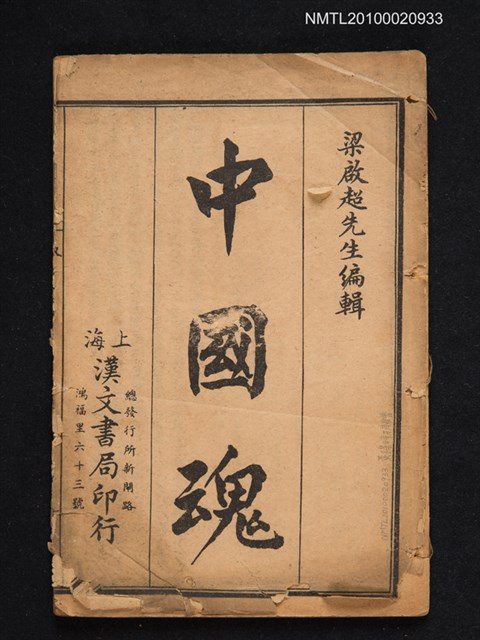 NMTL20100020933
梁啟超先生編輯
中國魂
上海
漢文書局印行
總發行所新閘路
鴻福里六十三號